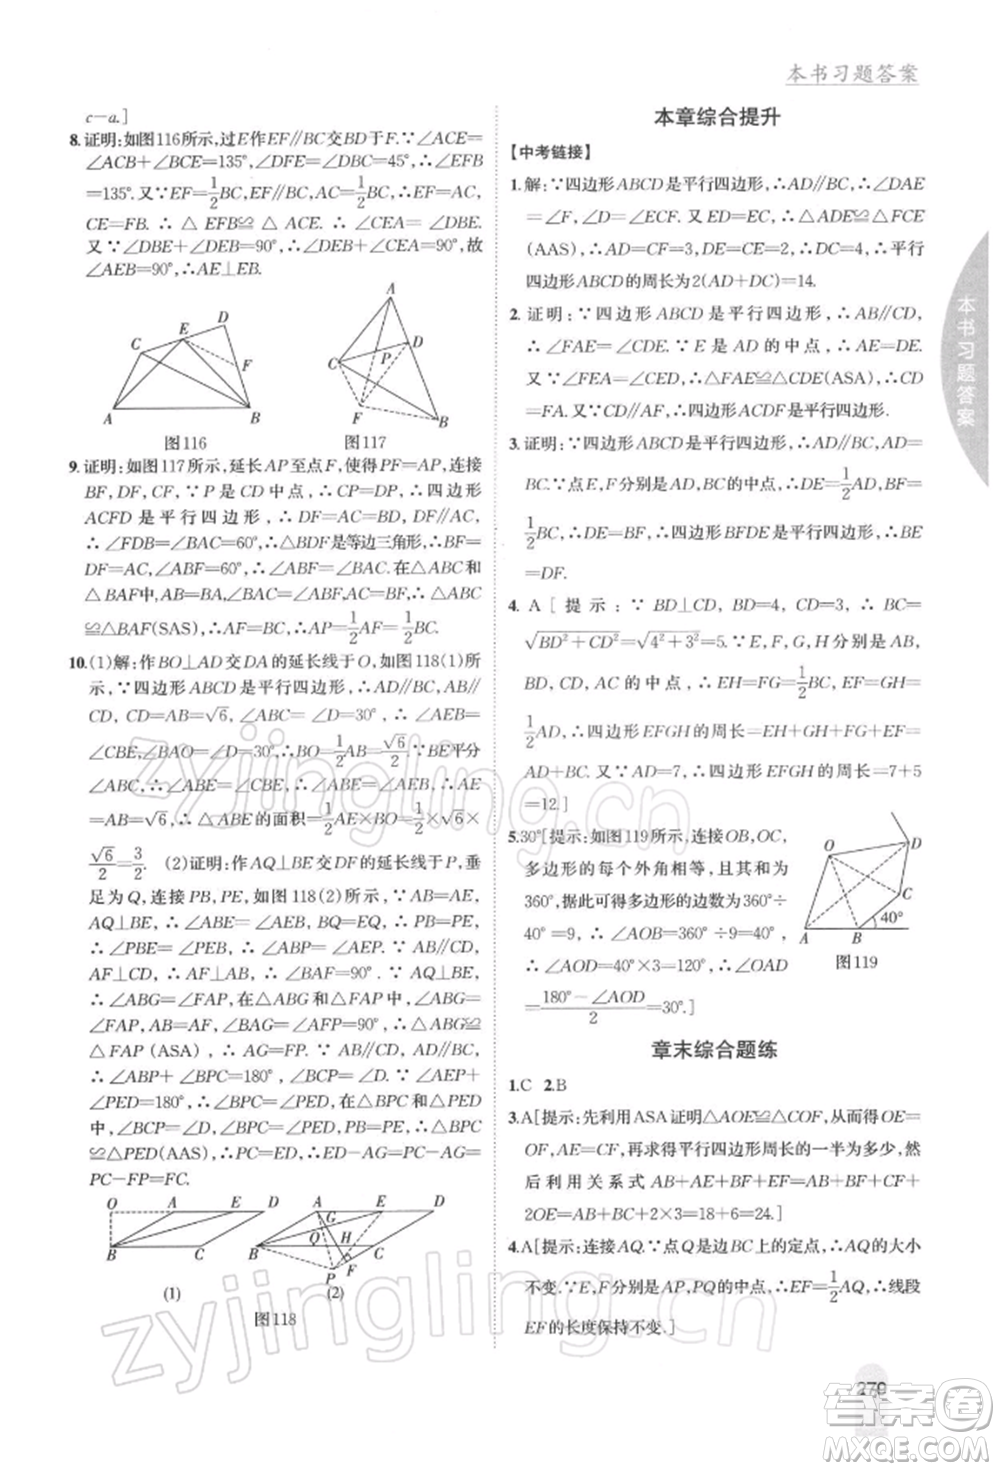 本书习题答案
c－a.]
8.证明:如图116所示,过E作EF∥BC交BD于F.∵∠ACE=
∠ACB+∠BCE=135°,∠DFE=∠DBC=45°,∴∠EFB
=135°.又∵EF=1/2BC,EF∥BC,AC=1/2BC,∴EF=AC,
CE=FB. ∴ △EFB≌△ACE, ∴ ∠CEA= ∠DBE.
又∵∠DBE+∠DEB=90°,∴∠DEB+∠CEA=90°,故
∠AEB=90°,∴AE⊥EB.
A B C D E F
图116
A B C D P F
图117
9.证明:如图117所示,延长AP至点F,使得PF=AP,连接
BF,DF,CF,∵P是CD中点,∴CP=DP,∴四边形
ACFD是平行四边形,∴DF=AC=BD,DF∥AC,
∴∠FDB=∠BAC=60°,∴△BDF是等边三角形,∴BF=
DF=AC,∠ABF=60°,∴∠ABF=∠BAC.在△ABC和
△BAF中,AB=BA,∠BAC=∠ABF,AC=BF,∴△ABC
≌△BAF(SAS),∴AF=BC,∴AP=1/2AF=1/2BC.
10.(1)解:作BO⊥AD交DA的延长线于O,如图118(1)所
示,∵四边形ABCD是平行四边形,∴AD∥BC,AB∥
CD, CD=AB=√6, ∠ABC= ∠D=30°, ∴ ∠AEB=
∠CBE,∠BAO=∠D=30°,∴BO=1/2AB=√6/2.∵BE平分
∠ABC,∴∠ABE=∠CBE,∴∠ABE=∠AEB,∴AE
=AB=√6,∴△ABE的面积=1/2AE×BO=1/2×√6×
√6/2=3/2. (2)证明:作AQ⊥BE交DF的延长线于P,垂
足为Q,连接PB,PE,如图118(2)所示,∵AB=AE,
AQ⊥BE, ∴ ∠ABE= ∠AEB, BQ=EQ, ∴ PB=PE,
∴∠PBE=∠PEB,∴∠ABP=∠AEP.∵AB∥CD,
AF⊥CD, ∴ AF⊥AB, ∴ ∠BAF=90°. ∵ AQ⊥BE,
∴∠ABG=∠FAP,在△ABG和△FAP中,∠ABG=
∠FAP,AB=AF,∠BAG=∠AFP=90°,∴△ABG≌
△FAP(ASA),∴AG=FP.∵AB∥CD,AD∥BC,
∴ ∠ABP + ∠BPC = 180°, ∠BCP= ∠D, ∵∠AEP+
∠PED=180°,∴∠BPC=∠PED,在△BPC和△PED
中,∠BCP=∠D,∠BPC=∠PED,PB=PE,∴△BPC
≌△PED(AAS),∴PC=ED,∴ED－AG=
PC－FP=FC.
O A E D
B C
(1)
A E D
G
B Q H C
P F
(2)
图118
本章综合提升
【中考链接】
1.解:∵四边形ABCD是平行四边形,∴AD∥BC,∴∠DAE
=∠F,∠D=∠ECF.又∵ED=EC,∴△ADE≌△FCE
(AAS),∴AD=CF=3,DE=CE=2,∴DC=4,∴平行
四边形ABCD的周长为2(AD+DC)=14.
2.证明:∵四边形ABCD是平行四边形,∴AB∥CD,
∴∠FAE=∠CDE.∵E是AD的中点,∴AE=DE.
又∵∠FEA=∠CED,∴△FAE≌△CDE(ASA),∴CD=
FA.又∵CD∥AF,∴四边形ACDF是平行四边形.
3.证明:∵四边形ABCD是平行四边形,∴AD∥BC,AD=
BC.∵点E,F分别是AD,BC的中点,∴DE=1/2AD,BF=
1/2BC,∴DE=BF,∴四边形BFDE是平行四边形,∴BE
=DF.
4. A [提示:∵BD⊥CD,BD=4,CD=3,∴BC=
√BD²+CD²=√4²+3²=5.∵E,F,G,H分别是AB,
BD,CD,AC的中点,∴EH=FG=1/2BC,EF=GH=
1/2AD,∴四边形EFGH的周长=EH+GH+FG+EF=
AD+BC.又∵AD=7,∴四边形EFGH的周长=7+5
=12.]
5.30°[提示:如图119所示,连接OB,OC,
多边形的每个外角相等,且其和为
360°,据此可得多边形的边数为360°÷
40°=9,∴∠AOB=360°÷9=40°,
∴∠AOD=40°×3=120°,∴∠OAD
=180°－∠AOD/2=30°.]
O D C A B 40°
图119
章末综合题练
1.C 2.B
3.A[提示:先利用ASA证明△AOE≌△COF,从而得OE=
OF,AE=CF,再求得平行四边形周长的一半为多少,然
后利用关系式AB+BC+EF=AB+BF+AE+EF=AB+BC+
2OE=AB+BC+2×3=18+6=24.]
4.A[提示:连接AQ.∵点Q是边BC上的定点,∴AQ的大小
不变.∵E,F分别是AP,PQ的中点,∴EF=1/2AQ,∴线段
EF的长度保持不变.]
本书习题答案
279
zyjingling.cn
zyjingling.cn
答案圈
MXQE.COM